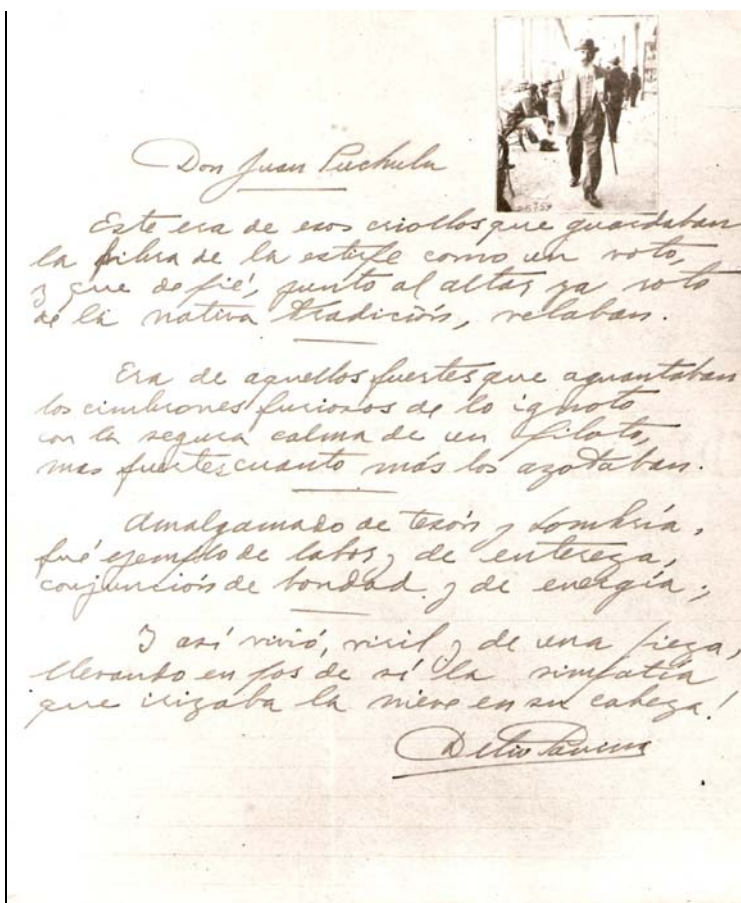 Don Juan Puchulu
Este era de esos criollos que guardaban
la fibra de la estirpe como un voto,
y que de pié, junto al altar ya roto
de la nativa tradición, velaban.
Era de aquellos fuertes que aguantaban
los cimbrones furiosos de lo ignoto
con la segura calma de un piloto,
mas fuertes cuanto más los azotaban.
Amalgamado de tesón y hombría,
fué ejemplo de labor y de entereza,
conjunción de bondad y de energía;
Y así vivió, viril y de una pieza,
llevando en pos de sí la simpatía
que irizaba la nieve en su cabeza!
Delio